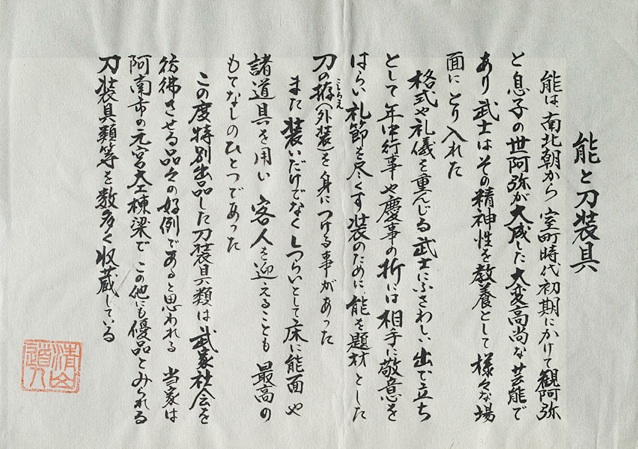 能と刀装具
能は、南北朝から室町時代初期にかけて観阿弥
と息子の世阿弥が大成した大変高尚な芸能で
あり武士はその精神性を教養として様々な場
面にとり入れた
格式や礼儀を重んじる武士にふさわしい出で立ち
として年中行事や慶事の折には相手に敬意を
はらい礼節を尽くす装のために、能を題材とした
刀の拵(外装)を身につける事があった
こしらえ
また装いだけでなくしつらいとして床に能面や
諸道具を用い客人を迎えることも最高の
もてなしのひとつであった
この度特別出品した刀装具類は武家社会を
彷彿させる品々の好例であると思われる 当家は
阿南市の元宮大工棟梁で、この他にも優品とみられる
刀装具類等を数多く収蔵している
清山
道人